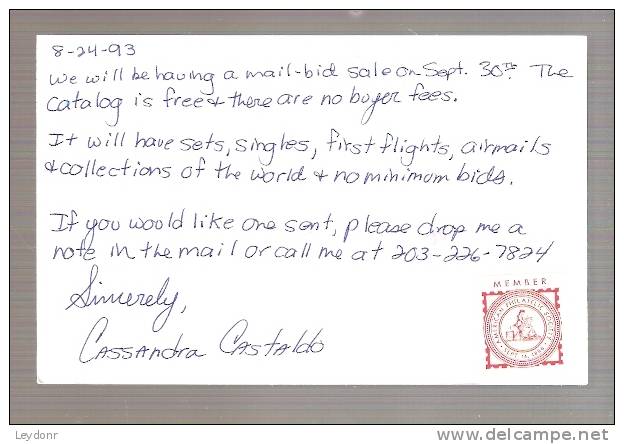 8-24-93
We will be having a mail-bid sale on Sept. 30th. The
Catalog is free & there are no buyer fees.
It will have sets, singles, first flights, airmails
& collections of the world & no minimum bids.
If you would like one sent, please drop me a
note in the mail or call me at 203-226-7824
Sincerely,
Cassandra Castaldo
MEMBER
AMERICAN PHILATELIC SOCIETY
SEPT. 14, 1886
Leydonr
www.delcampe.net